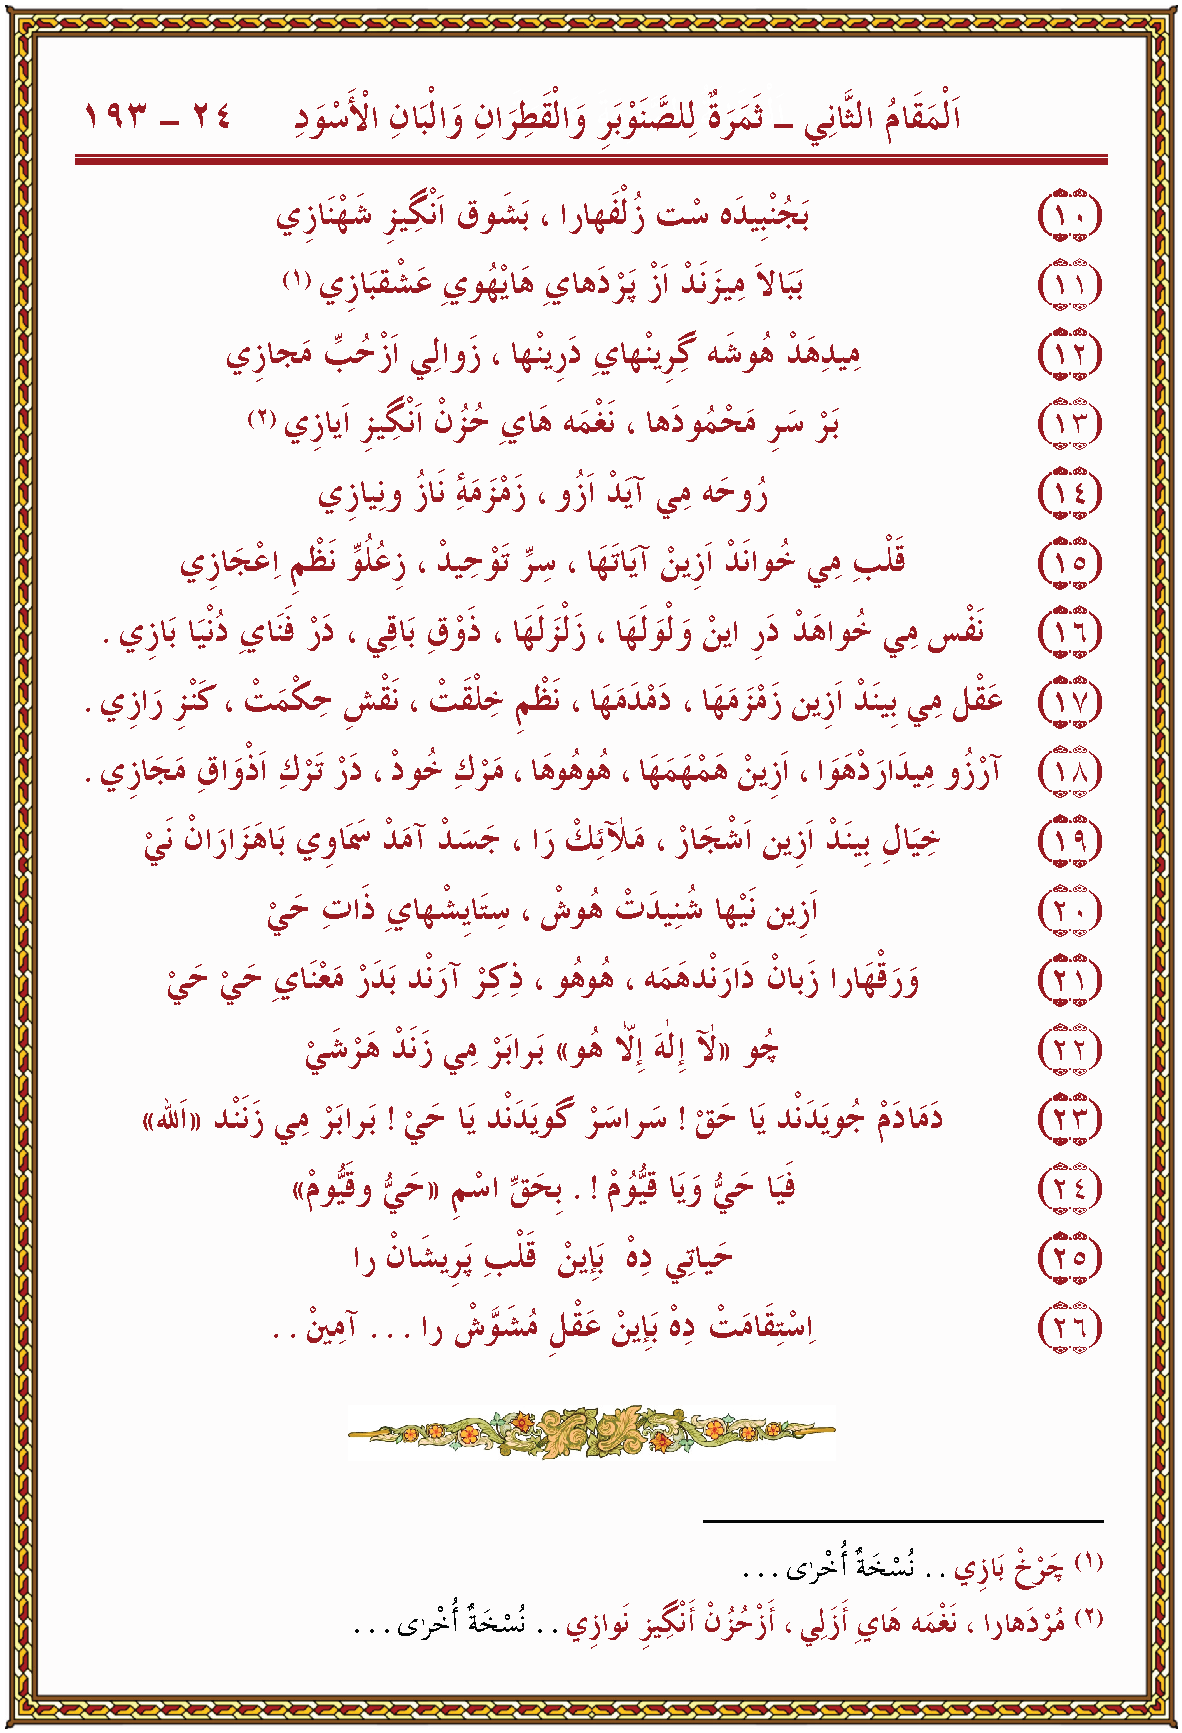 اَلْمَقَامُ الثَّانِي ــ ثَمَرَةٌ لِلصَّنَوْبَرِ وَالْقَطِرَانِ وَالْبَانِ الْأَسْوَدِ ٢٤ – ١٩٣
(١٠) بَجُنْبِيدَه سْت زُلْفَهارا ، بَشَوق اَنْگِيزِ شَهْنَازِي
(١١) بَبَالاَ مِيزَنَدْ اَزْ پَرْدَهايِ هَايْهُويِ عَشْقبَازِي (١)
(١٢) مِيدِهَدْ هُوشَه گِرِينْهايِ دَرِينْها ، زَوالِي اَزْحُبِّ مَجازِي
(١٣) بَرْ سَرِ مَحْمُودَها ، نَغْمَه هَايِ حُزْنْ اَنْگِيزِ اَيازِي (٢)
(١٤) رُوحَه مِي آيَدْ اَزُو ، زَمْزَمَهِٔ نَازُ ونِيازِي
(١٥) قَلْبِ مِي خُوانَدْ اَزِينْ آيَاتَهَا ، سِرِّ تَوْحِيدْ ، زِعُلُوِّ نَظْمِ اِعْجَازِي
(١٦) نَفْس مِي خُواهَدْ دَرِ اينْ وَلْوَلَهَا ، زَلْزَلَهَا ، ذَوْقِ بَاقِي ، دَرْ فَنَايِ دُنْيَا بَازِي .
(١٧) عَقْل مِي بِينَدْ اَزِين زَمْزَمَهَا ، دَمْدَمَهَا ، نَظْمِ خِلْقَتْ ، نَقْشِ حِكْمَتْ ، كَنْزِ رَازِي .
(١٨) آرْزُو مِيدَارَدْهَوَا ، اَزِينْ هَمْهَمَهَا ، هُوهُوهَا ، مَرْكِ خُودْ ، دَرْ تَرْكِ اَذْوَاقِ مَجَازِي .
(١٩) خِيَالِ بِينَدْ اَزِين اَشْجَارْ ، مَلٰٓائِكْ رَا ، جَسَدْ آمَدْ سَمَاوِي بَاهَزَارَانْ نَيْ
(٢٠) اَزِين نَيْها شُنِيدَتْ هُوشْ ، سِتَايِشْهايِ ذَاتِ حَيْ
(٢١) وَرَقْهَارا زَبانْ دَارَنْدهَمَه ، هُوهُو ، ذِكِرْ آرَنْد بَدَرْ مَعْنَايِ حَيْ حَيْ
(٢٢) چُو «لٰٓا إِلٰهَ إِلّٰا هُو» بَرابَرْ مِي زَنَدْ هَرْشَيْ
(٢٣) دَمَادَمْ جُويَدَنْد يَا حَقْ ! سَراسَرْ گويَدَنْد يَا حَيْ ! بَرابَرْ مِي زَنَنْد «اَللّٰه»
(٢٤) فَيَا حَيُّ وَيَا قَيُّوُمْ ! . بِحَقِّ اسْمِ «حَيُّ وقَيُّومْ»
(٢٥) حَياتِي دِهْ بَإِينْ قَلْبِ پَرِيشَانْ را
(٢٦) اِسْتِقَامَتْ دِهْ بَإِينْ عَقْلِ مُشَوَّشْ را . . . آمِينْ . .
(١) چَرْخْ بَازِي . . نُسْخَةٌ أُخْرٰى . . .
(٢) مُرْدَهارا ، نَغْمَه هَايِ أَزَلِي ، أَزْحُزْنْ أَنْگِيزِ نَوازِي . . نُسْخَةٌ أُخْرٰى . . .